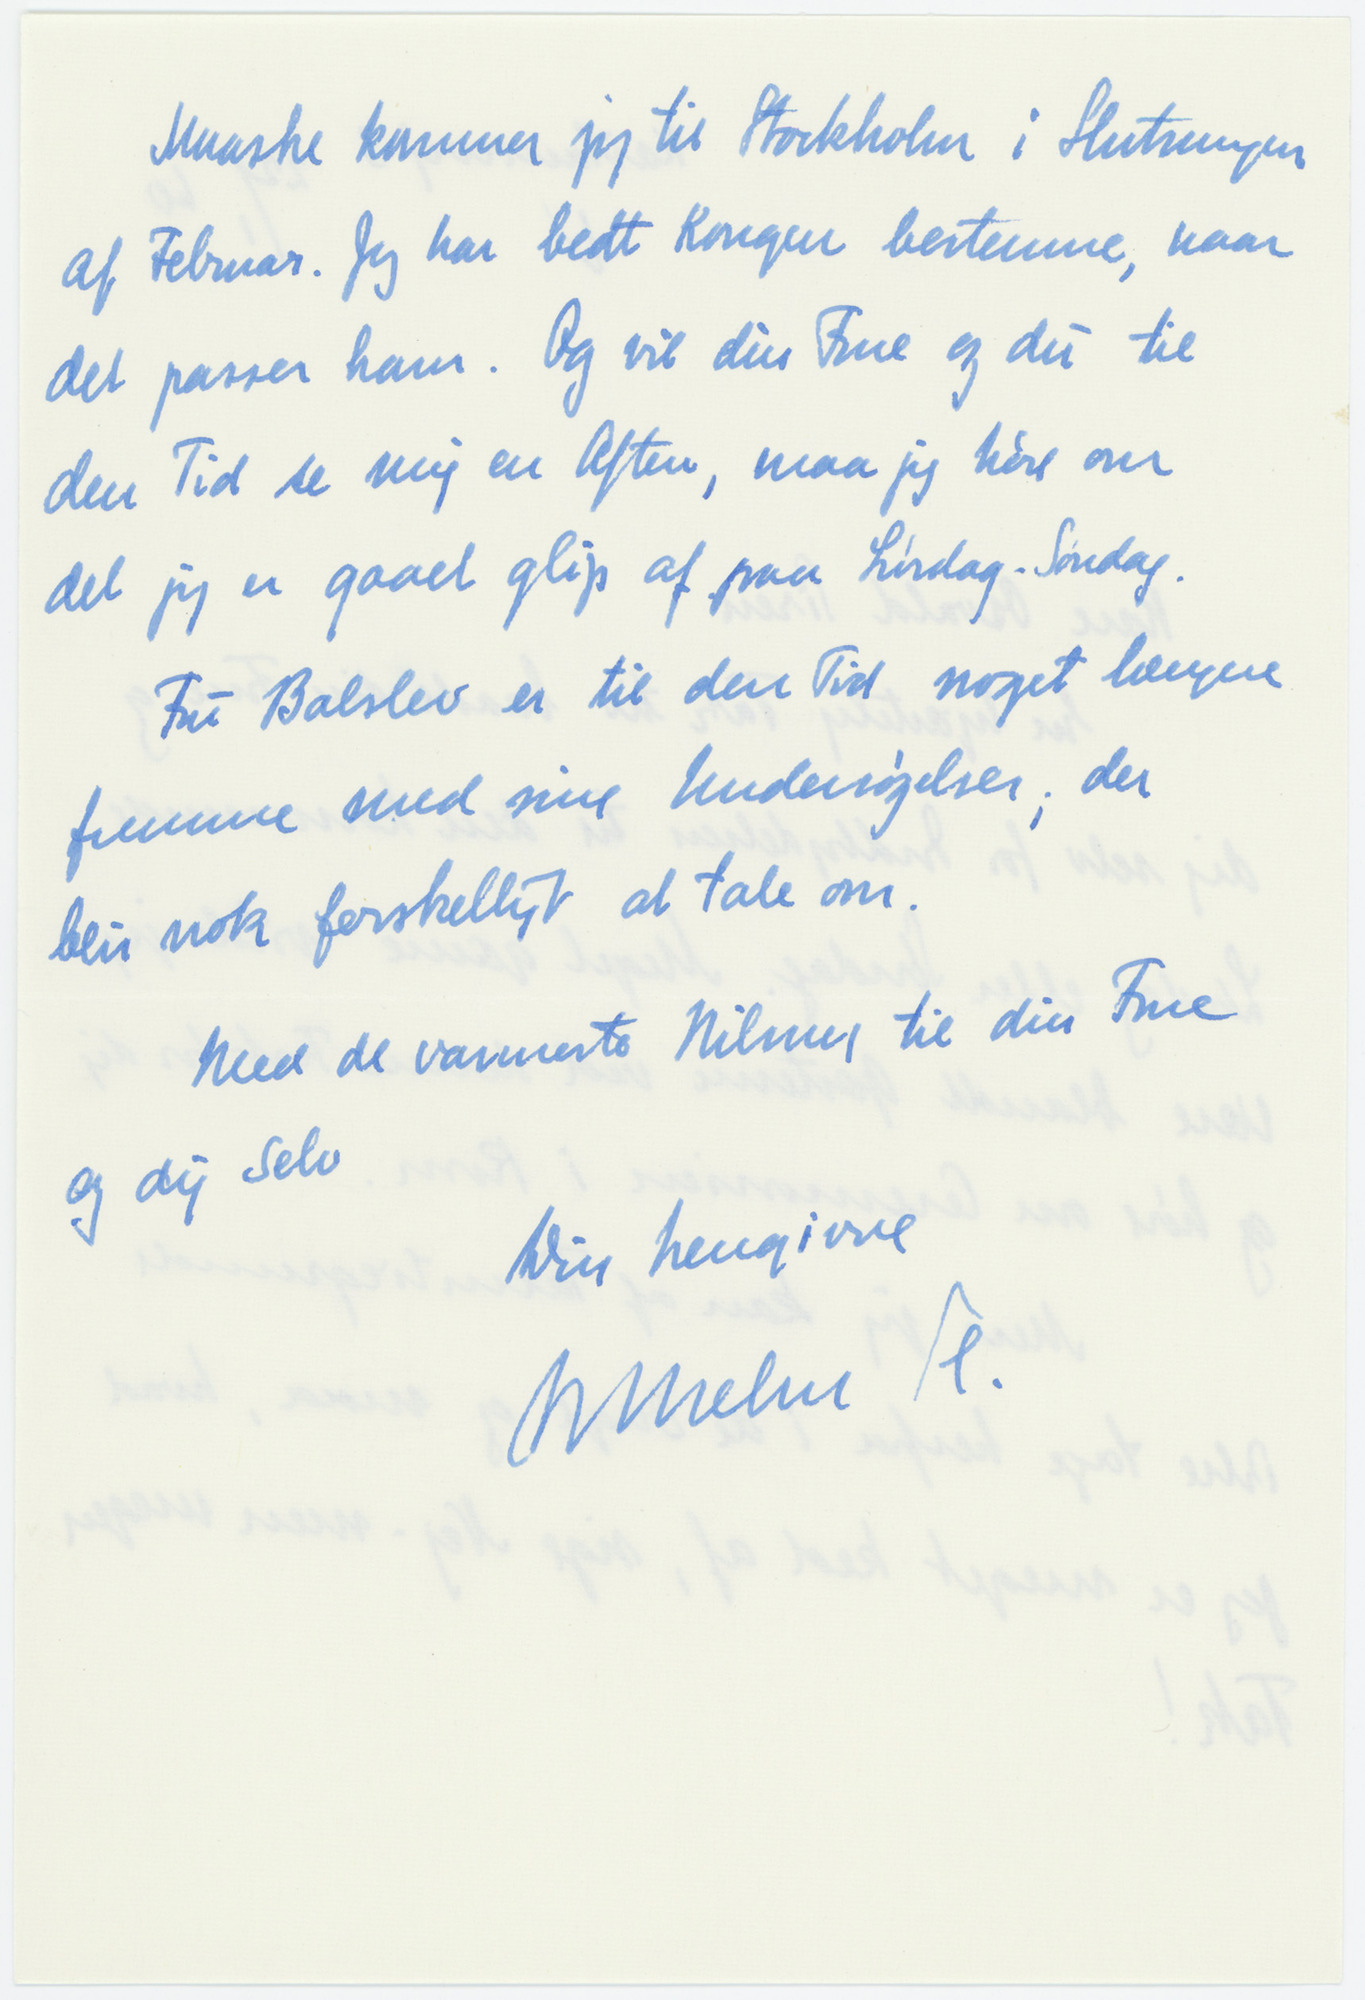 Maaske kommer jeg til Stockholm i Slutningen
af Februar. Jeg har bedt Kongen bestemme, naar
det passer ham. Og vil din Frue og dū til
den Tid se mig en Aften, maa jeg höre om
det jeg er gaaet glip af paa Lördag-Söndag.
Frū Balslev er til den Tid noget længere
fremme med sine Undersögelser; der
blir nok forskelligt at tale om.
Med de varmeste Hilsner til din Frue
og dig selv
Din hengivne
Vilhelm